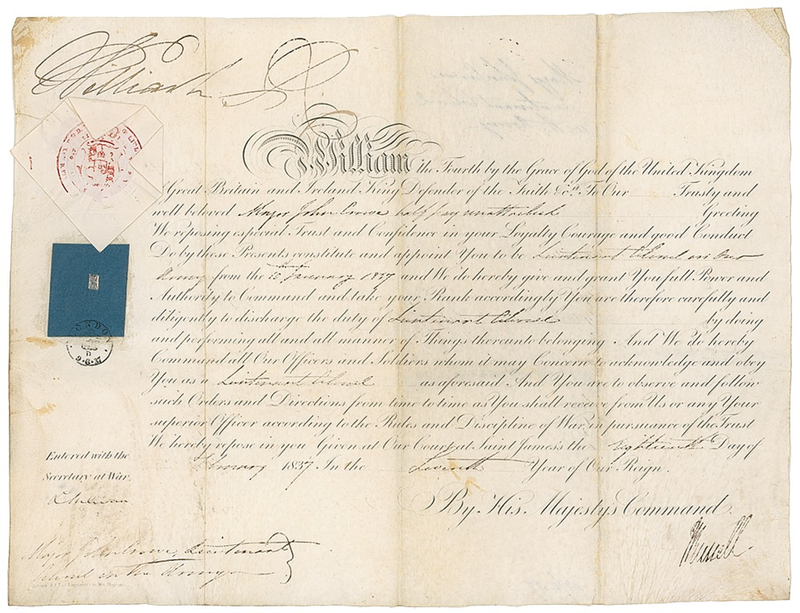 William R
William the Fourth by the Grace of God of the United Kingdom
of Great Britain and Ireland King Defender of the Faith &c. To Our Trusty and
well beloved Major John Crowe half pay unattached Greeting
We reposing especial Trust and Confidence in your Loyalty Courage and good Conduct
Do by these Presents constitute and appoint You to be Lieutenant Colonel in Our
Army from the 10th January 1837 and We do hereby give and grant You full Power and
Authority to Command and take your Rank accordingly You are therefore carefully and
diligently to discharge the duty of Lieutenant Colonel by doing
and performing all and all manner of Things thereunto belonging And We do hereby
Command all Our Officers and Soldiers whom it may Concern to acknowledge and obey
You as a Lieutenant Colonel as aforesaid And You are to observe and follow
such Orders and Directions from time to time as You shall receive from Us or any Your
superior Officer according to the Rules and Discipline of War in pursuance of the Trust
We hereby repose in you Given at Our Court at Saint James's the eighteenth Day of
1837 In the Seventh Year of Our Reign
By His Majesty's Command
LONDON
D
Entered with the
Secretary at War
Major John Crowe, Lieutenant
Colonel in the Army